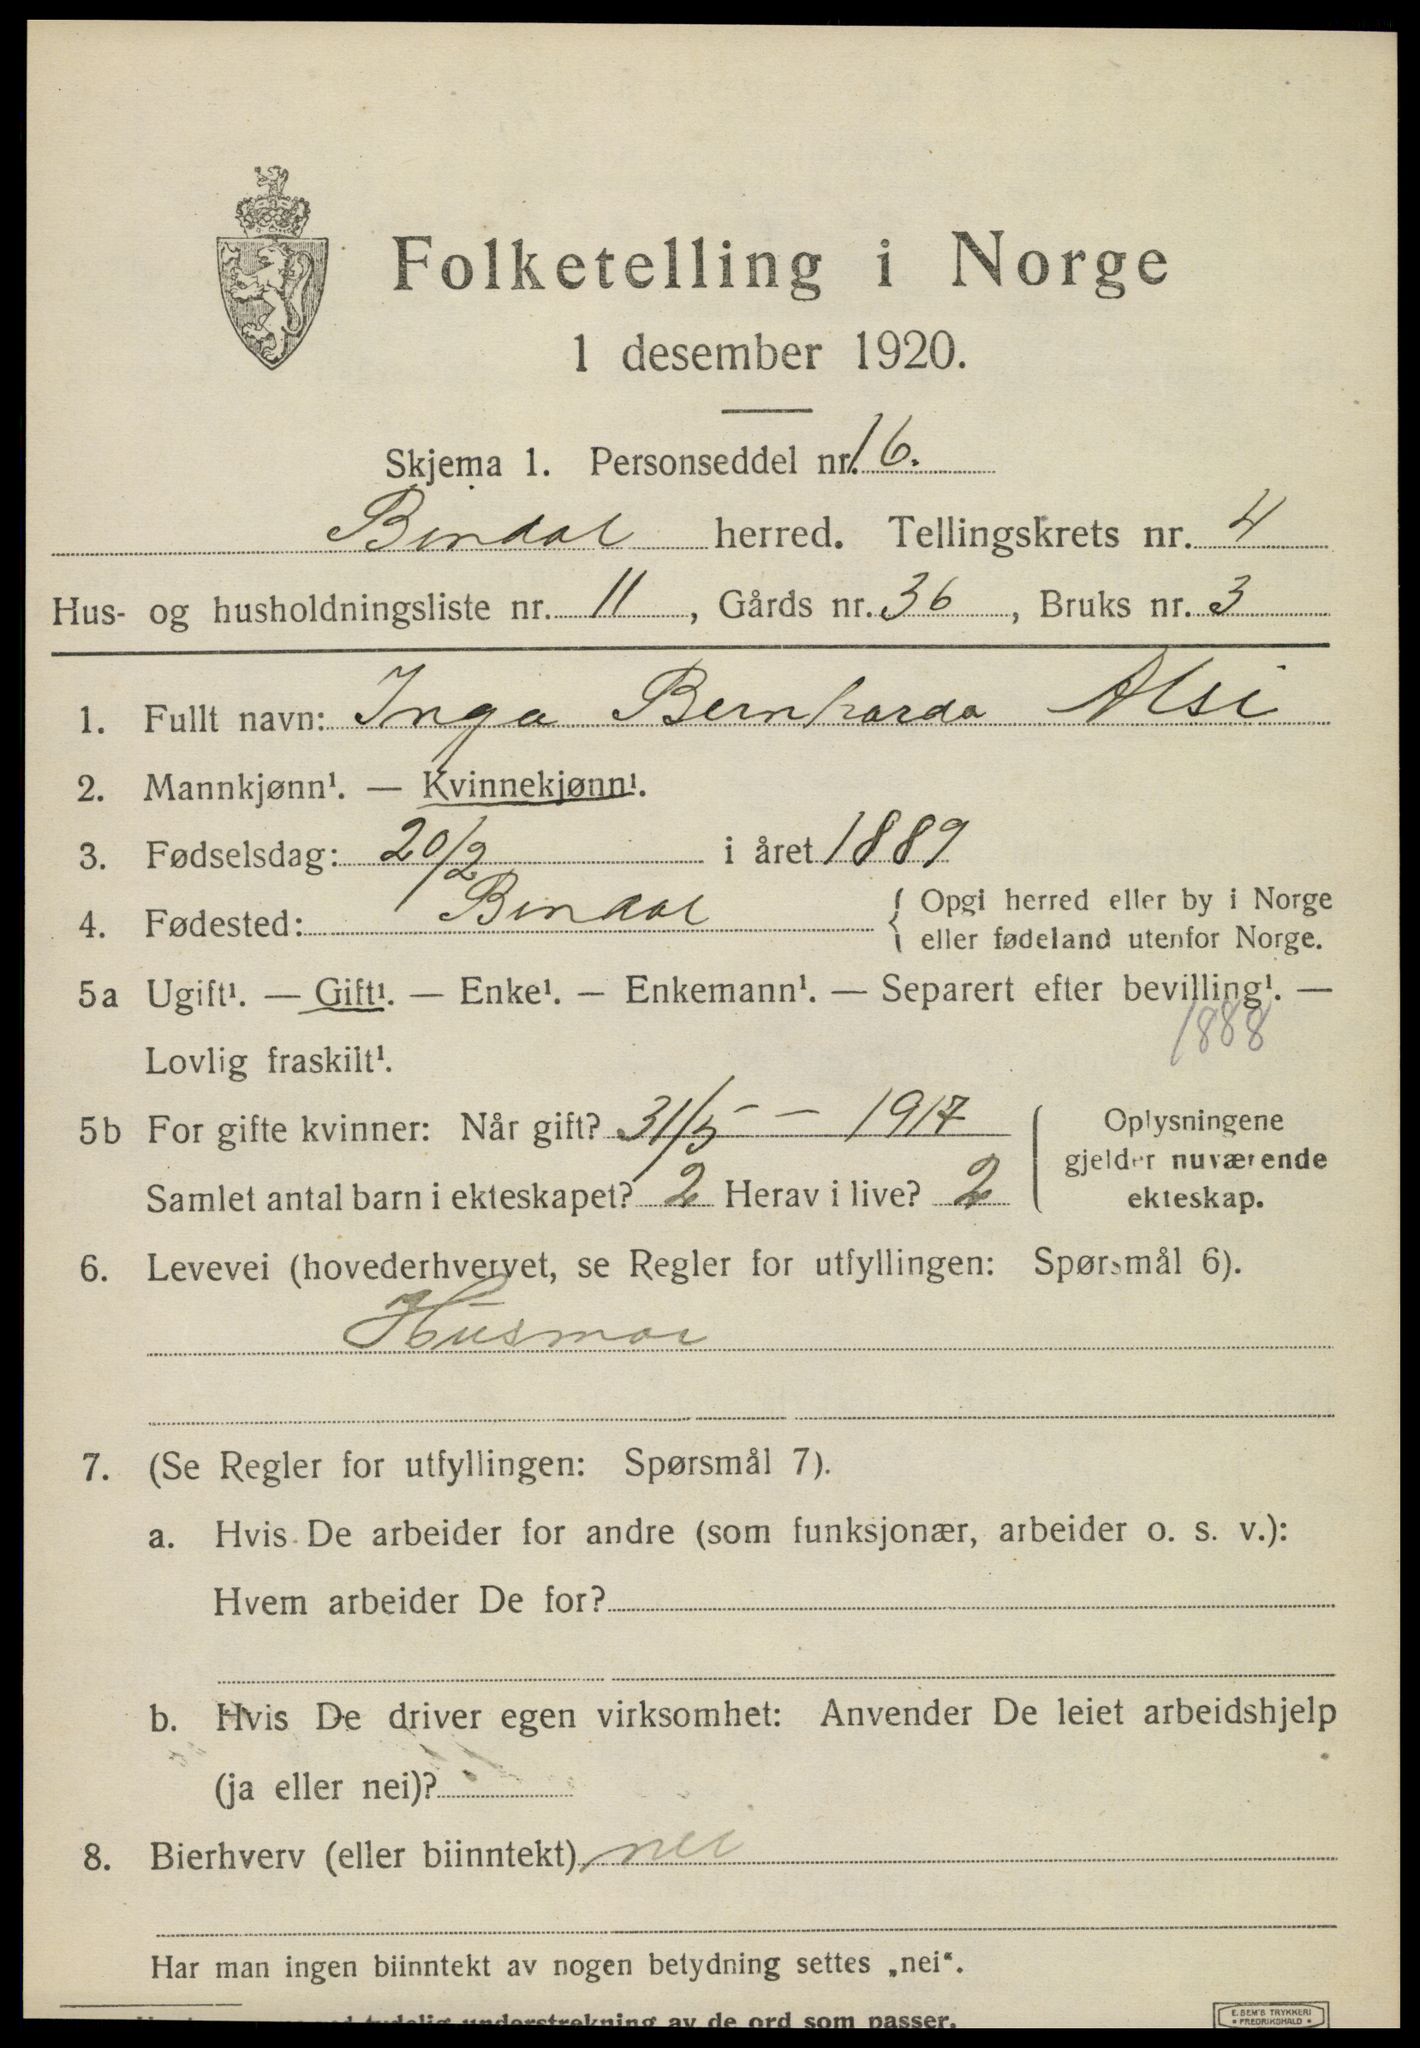 Folketelling i Norge
1 desember 1920.
Skjema 1. Personseddel nr. 16.
Bindal herred. Tellingskrets nr. 4
Hus- og husholdningsliste nr. 11, Gårds nr. 36, Bruks nr. 3
1. Fullt navn: Inga Bernharda Alsi
2. Mannkjønn¹. — Kvinnekjønn¹.
3. Fødselsdag: 20/2 i året 1889
4. Fødested: Bindal { Opgi herred eller by i Norge
eller fødeland utenfor Norge.
5a Ugift¹. — Gift¹. — Enke¹. — Enkemann¹. — Separert efter bevilling¹. —
1888
Lovlig fraskilt¹.
5b For gifte kvinner: Når gift? 31/5 — 1917
Samlet antal barn i ekteskapet? 2 Herav i live? 2
Oplysningene
gjelder nuværende
ekteskap.
6. Levevei (hovederhvervet, se Regler for utfyllingen: Spørsmål 6).
Husmor
7. (Se Regler for utfyllingen: Spørsmål 7).
a. Hvis De arbeider for andre (som funksjonær, arbeider o. s. v.):
Hvem arbeider De for?
b. Hvis De driver egen virksomhet: Anvender De leiet arbeidshjelp
(ja eller nei)?
8. Bierhverv (eller biinntekt) nei
Har man ingen biinntekt av nogen betydning settes „nei“.
tydelig understrekning av de ord som passer.
E. SEM'S TRYKKERI
FREDRIKSHALD